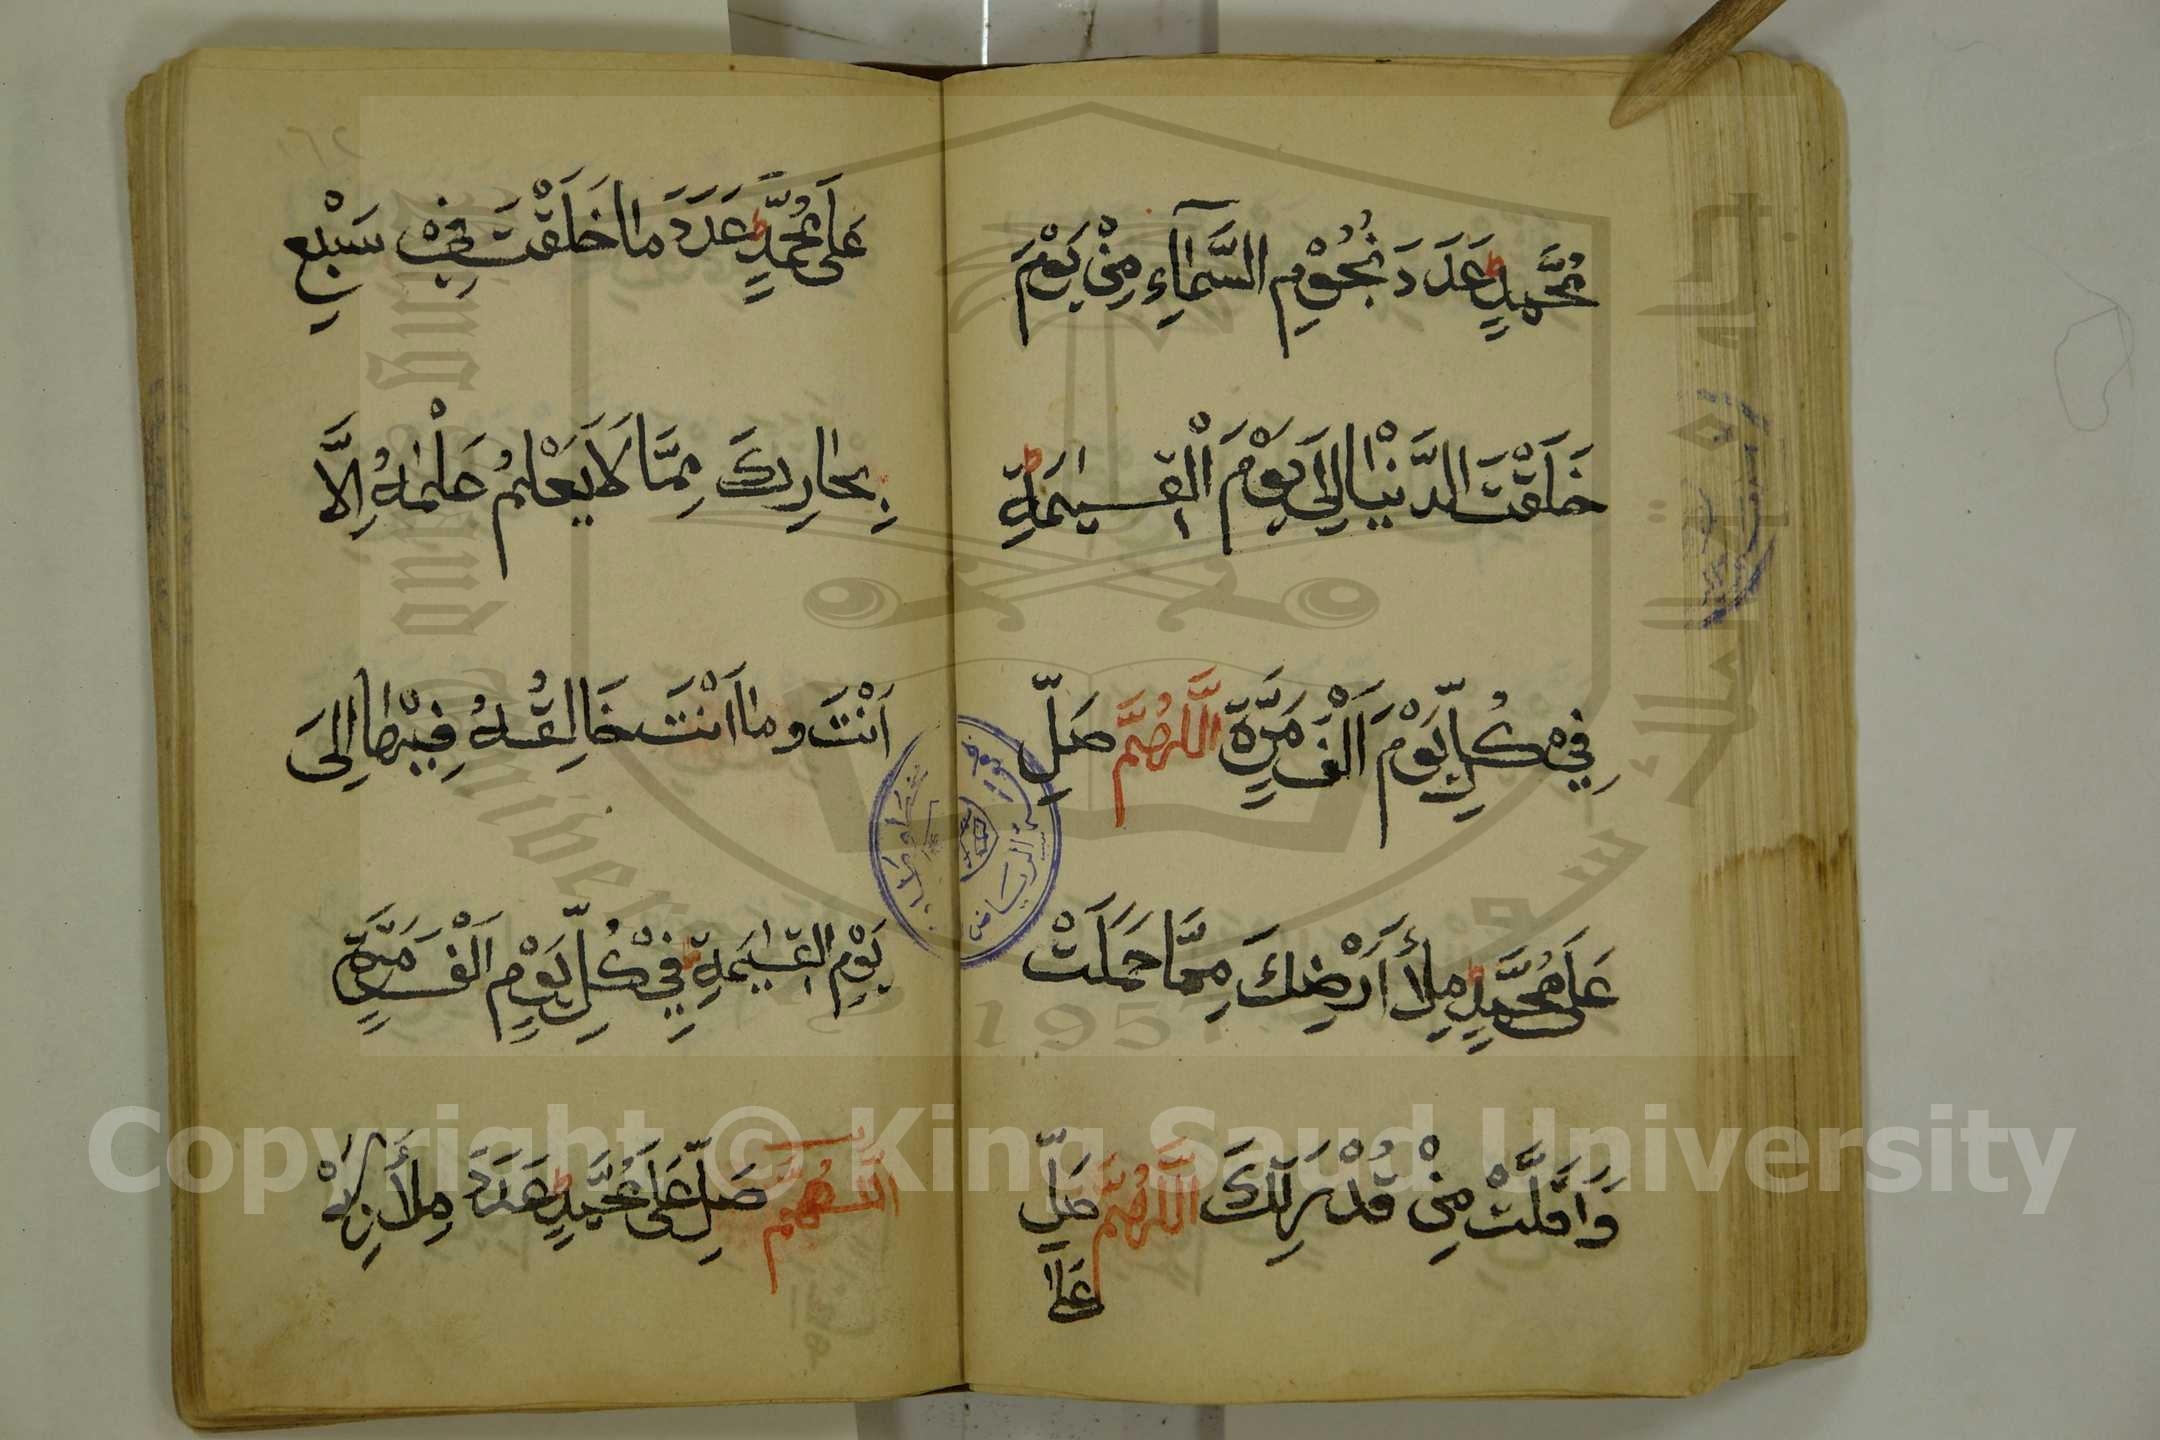 مُحَمَّدٍ عَدَدَ نُجُوْمِ السَّمَآءِ مِنْ يَوْمَ
خَلَقْتَ الدَّنْيَا اِلَى يَوْمَ الْقِيٰمَةِ
فِيْ كُلِّ يَوْمَ اَلْفَ مَرَّةٍ اَللّٰهُمَّ صَلِّ
عَلَى مُحَمَّدٍ مِلأَ اَرْضِكَ مِمَّا حَمَلَتْ
وَاَقَلَّتْ مِنْ قُدْرَتِكَ اَللّٰهُمَّ صَلِّ
عَلَى
عَلَى مُحَمَّدٍ عَدَدَ مَا خَلَقْتَ فِيْ سَبْعِ
بِحَارِكَ مِمَّا لَا يَعْلَمُ عِلْمَهُ اِلَّا
اَنْتَ وَمَا اَنْتَ خَالِقُهُ فِيْهَا اِلَى
يَوْمِ الْقِيٰمَةِ فِيْ كُلِّ يَوْمٍ اَلْفَ مَرَّةٍ
اَللّٰهُمَّ صَلِّ عَلَى مُحَمَّدٍ عَدَدَ مِلأَ
Copyright © King Saud University
1957